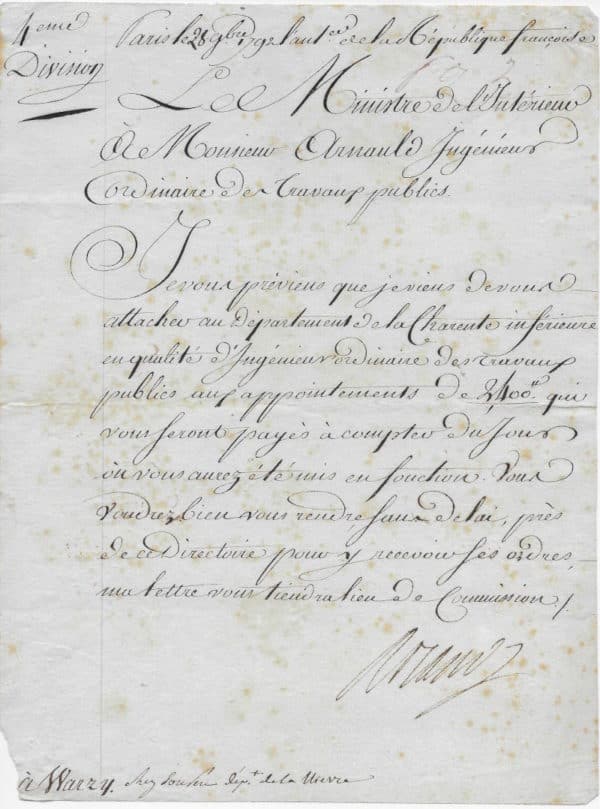 4eme
Division
Paris le 28 9bre 1792 l'an 1er de la République françoise
Le Ministre de l'Intérieur
A Monsieur Arnauld Ingénieur
Ordinaire des Travaux publics.
Je vous préviens que je viens de vous
attacher au département de la Charente inférieure
en qualité d'Ingénieur ordinaire des travaux
publics aux appointements de 2,400# qui
vous seront payés à compter du Jour
où vous aurez été mis en fonction. Vous
voudrez bien vous rendre sans delai, près
de ce Directoire pour y recevoir ses ordres,
ma lettre vous tiendra lieu de Commission /.
Roland
à Warzy. dépt. de la Nievre